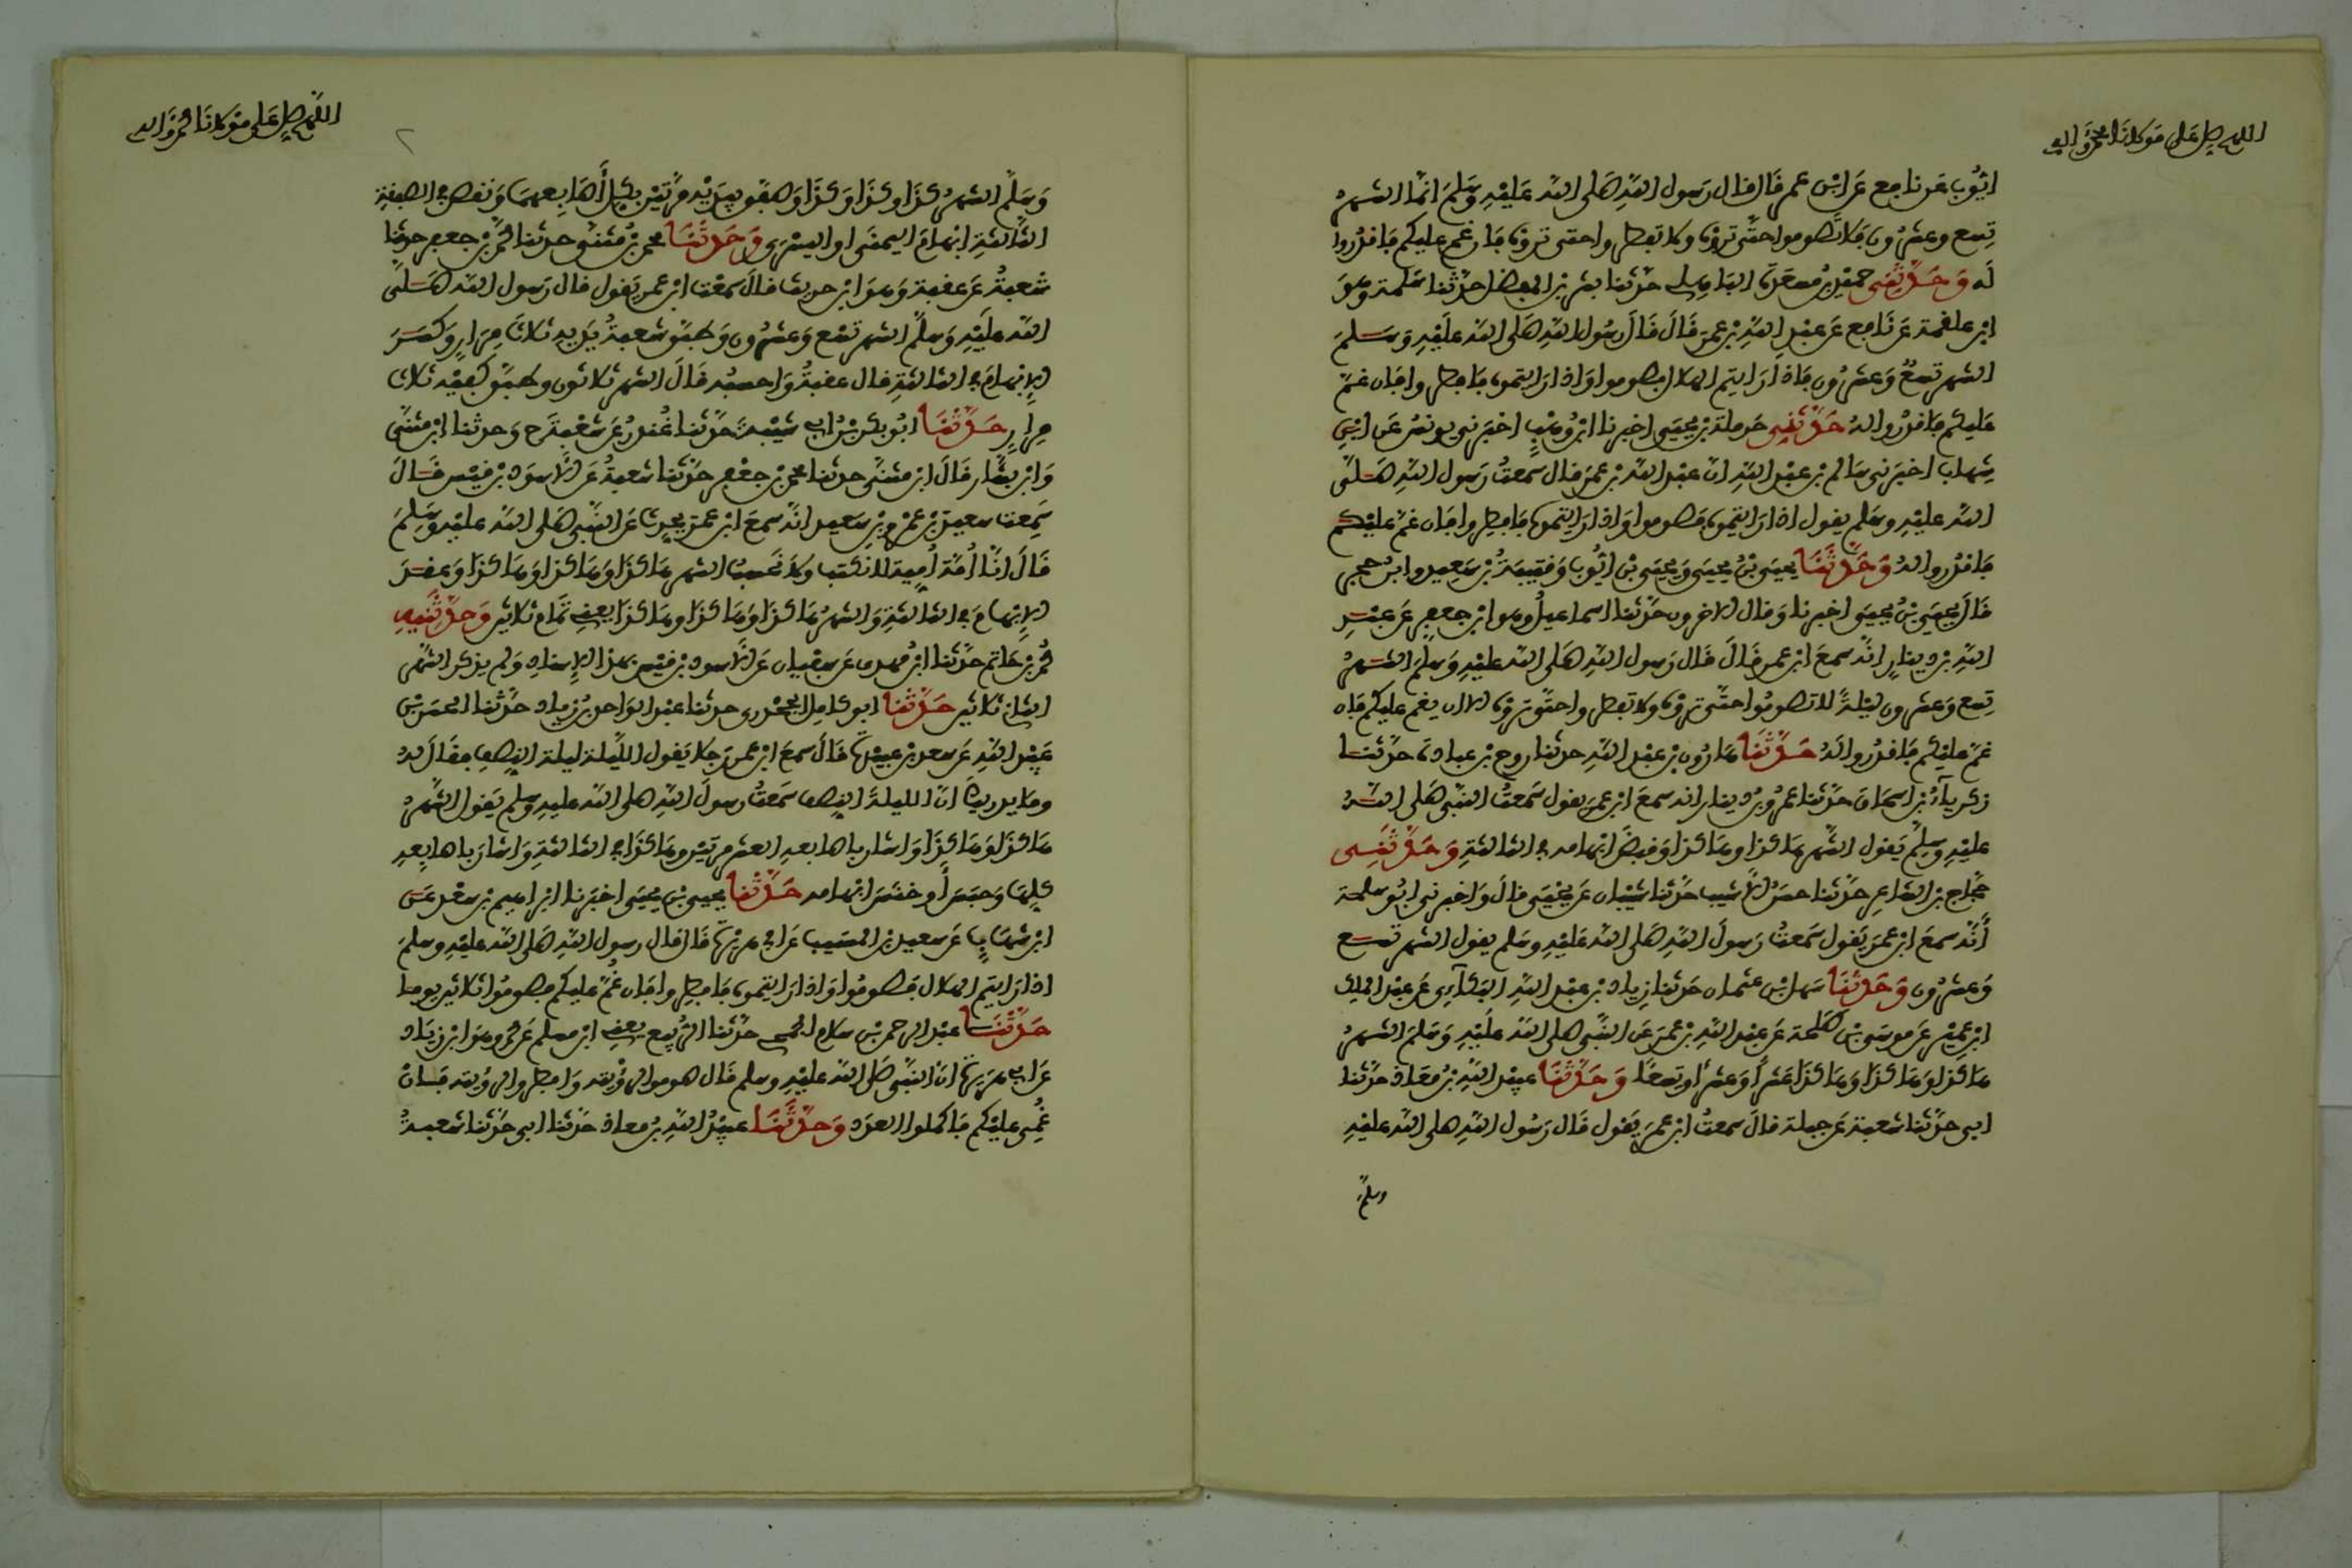 اللهم صل على مولانا محمد واله
ايوب عن نافع عن ابن عمر قال قال رسول الله صلى الله عليه وسلم انما الشهر
تسع وعشرون فلا تصوموا حتى تروه ولا تفطروا حتى تروه فان غم عليكم فاقدروا
له وحدثني حميد بن مسعدة الباهلي حدثنا بشر بن المفضل حدثنا سلمة وهو
ابن علقمة عن نافع عن عبد الله بن عمر قال قال رسول الله صلى الله عليه وسلم
الشهر تسع وعشرون فاذا رايتم الهلال فصوموا واذا رايتموه فافطروا فان غم
عليكم فاقدروا له حدثني حرملة بن يحيى اخبرنا ابن وهب اخبرني يونس عن ابن
شهاب اخبرني سالم بن عبد الله ان عبد الله بن عمر قال سمعت رسول الله صلى
الله عليه وسلم يقول اذا رايتموه فصوموا واذا رايتموه فافطروا فان غم عليكم
فاقدروا له وحدثنا يحيى بن يحيى ويحيى بن ايوب وقتيبة بن سعيد وابن حجر
قال يحيى بن يحيى اخبرنا وقال الاخرون حدثنا اسماعيل وهو ابن جعفر عن عبد
الله بن دينار انه سمع ابن عمر قال قال رسول الله صلى الله عليه وسلم الشهر
تسع وعشرون ليلة لا تصوموا حتى تروه ولا تفطروا حتى تروه الا ان يغم عليكم فان
غم عليكم فاقدروا له حدثنا هارون بن عبد الله حدثنا روح بن عبادة حدثنا
زكرياء بن اسحاق حدثنا عمرو بن دينار انه سمع ابن عمر يقول سمعت النبي صلى الله
عليه وسلم يقول الشهر هاكذا وهاكذا وهاكذا وقبض ابهامه في الثالثة وحدثني
حجاج بن الشاعر حدثنا حسن الاشيب حدثنا شيبان عن يحيى قال واخبرني ابو سلمة
انه سمع ابن عمر يقول سمعت رسول الله صلى الله عليه وسلم يقول الشهر تسع
وعشرون وحدثنا سهل بن عثمان حدثنا زياد بن عبد الله البكاءي عن عبد الملك
ابن عمير عن موسى بن طلحة عن عبد الله بن عمر عن النبي صلى الله عليه وسلم الشهر
هاكذا وهاكذا وهاكذا عشرا وعشرا وتسعا وحدثنا عبيد الله بن معاذ حدثنا
ابي حدثنا شعبة عن جبلة قال سمعت ابن عمر يقول قال رسول الله صلى الله عليه
وسلم
اللهم صل على مولانا محمد واله
٢
وسلم الشهر كذا وكذا وكذا وصفق بيديه مرتين بكل اصابعهما ونقص في الصفقة
الثالثة ابهام اليمنى او اليسرى وحدثنا محمد بن مثنى حدثنا محمد بن جعفر حدثنا
شعبة عن عقبة وهو ابن حريث قال سمعت ابن عمر يقول قال رسول الله صلى
الله عليه وسلم الشهر تسع وعشرون وطبق شعبة يديه ثلاث مرار وكسر
الابهام في الثالثة قال عقبة واحسبه قال الشهر ثلاثون وطبق كفيه ثلاث
مرار حدثنا ابو بكر بن ابي شيبة حدثنا غندر عن شعبة ح وحدثنا ابن مثنى
وابن بشار قال ابن مثنى حدثنا محمد بن جعفر حدثنا شعبة عن الاسود بن قيس قال
سمعت سعيد بن عمرو بن سعيد انه سمع ابن عمر يحدث عن النبي صلى الله عليه وسلم
قال انا امة امية لا نكتب ولا نحسب الشهر هاكذا وهاكذا وهاكذا وعقد
الابهام في الثالثة والشهر هاكذا وهاكذا وهاكذا يعني تمام ثلاثين وحدثنيه
محمد بن حاتم حدثنا ابن مهدي عن سفيان عن الاسود بن قيس بهذا الاسناد ولم يذكر الشهر
الثاني ثلاثين حدثنا ابو كامل الجحدري حدثنا عبد الواحد بن زياد حدثنا الحسن بن
عبيد الله عن سعد بن عبيدة قال سمع ابن عمر رجلا يقول الليلة ليلة النصف فقال له
وما يدريك ان الليلة النصف سمعت رسول الله صلى الله عليه وسلم يقول الشهر
هاكذا وهاكذا واشار باصابعه العشر مرتين وهاكذا في الثالثة واشار باصابعه
كلها وحبس او خنس ابهامه حدثنا يحيى بن يحيى اخبرنا ابراهيم بن سعد عن
ابن شهاب عن سعيد بن المسيب عن ابي هريرة قال قال رسول الله صلى الله عليه وسلم
اذا رايتم الهلال فصوموا واذا رايتموه فافطروا فان غم عليكم فصوموا ثلاثين يوما
حدثنا عبد الرحمن بن سلام الجمحي حدثنا الربيع يعني ابن مسلم عن محمد وهو ابن زياد
عن ابي هريرة ان النبي صلى الله عليه وسلم قال صوموا لرؤيته وافطروا لرؤيته فان
غمي عليكم فاكملوا العدد وحدثنا عبيد الله بن معاذ حدثنا ابي حدثنا شعبة